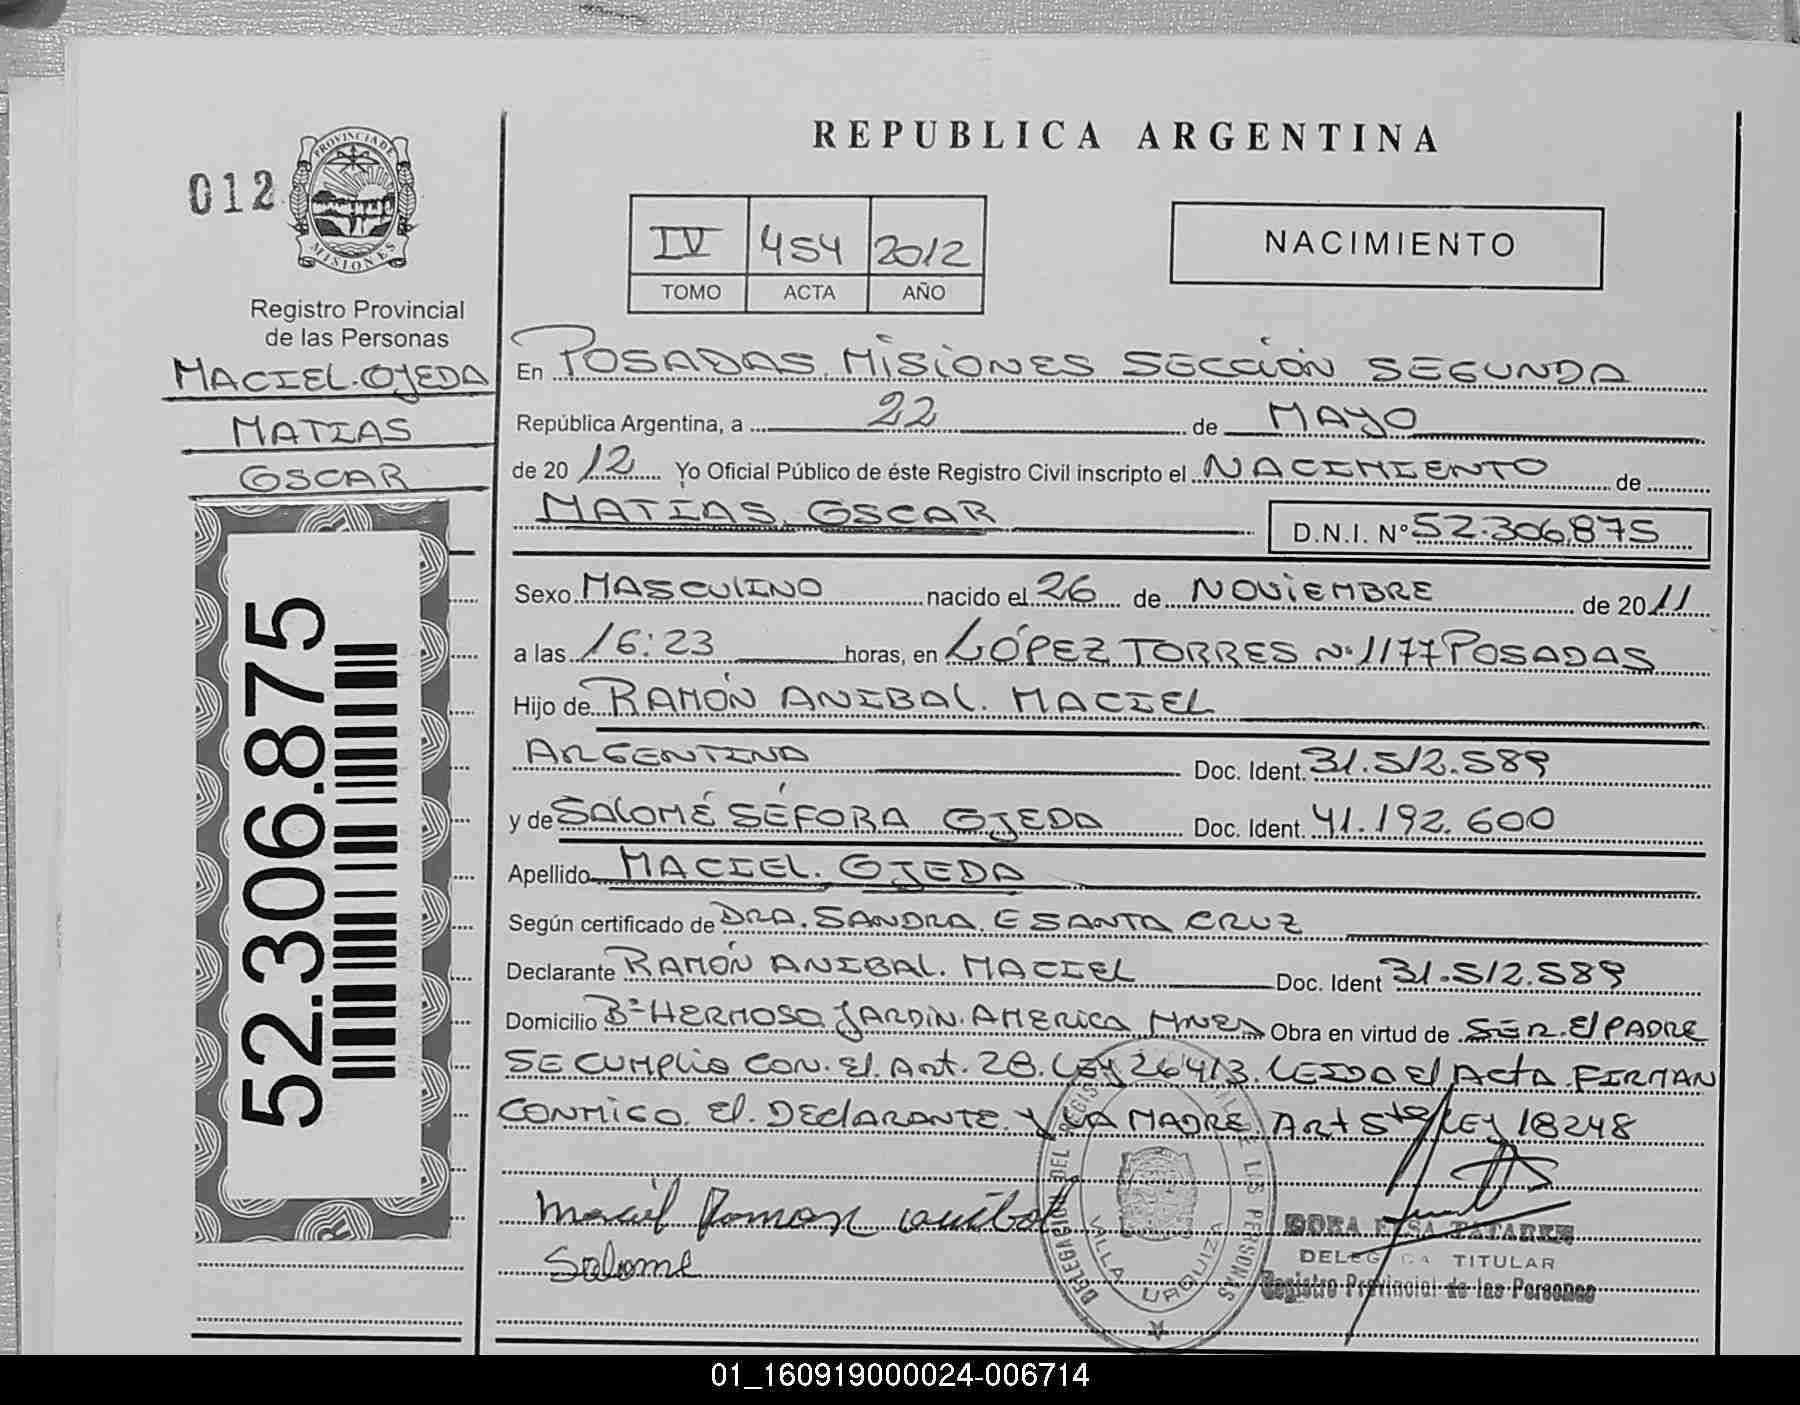 REPUBLICA ARGENTINA
012
PROVINCIA DE MISIONES
Registro Provincial
de las Personas
MACIEL. OJEDA
MATIAS
OSCAR
52.306.875
IV 454 2012
TOMO ACTA AÑO
NACIMIENTO
En POSADAS. MISIONES SECCIÓN SEGUNDA
República Argentina, a 22 de MAYO
de 2012 Yo Oficial Público de éste Registro Civil inscripto el NACIMIENTO de
MATIAS OSCAR D.N.I. N° 52.306.875
Sexo MASCULINO nacido el 26 de NOVIEMBRE de 2011
a las 16:23 horas, en LÓPEZ TORRES Nº 1177 POSADAS
Hijo de RAMÓN ANIBAL. MACIEL
ARGENTINA Doc. Ident. 31.512.589
y de SALOMÉ SÉFORA OJEDA Doc. Ident. 41.192.600
Apellido MACIEL. OJEDA
Según certificado de DRA. SANDRA. E SANTA CRUZ
Declarante RAMÓN ANIBAL. MACIEL Doc. Ident 31.512.589
Domicilio Bº HERMOSO JARDIN. AMERICA MNES Obra en virtud de SER. El PADRE
SE CUMPLIO CON. El. Art. 28. LEY 26413. LEIDO El ACTA FIRMAN
CONMIGO. El. DEClARANTE Y LA MADRE ARt 5to LEY 18248
Maciel Ramon anibal
Salome
DELEGACION DEL REGISTRO PROVINCIAL DE LAS PERSONAS
VILLA URQUIZA
DORA TATAREN
DELEGADA TITULAR
Registro Provincial de las Personas
01_160919000024-006714